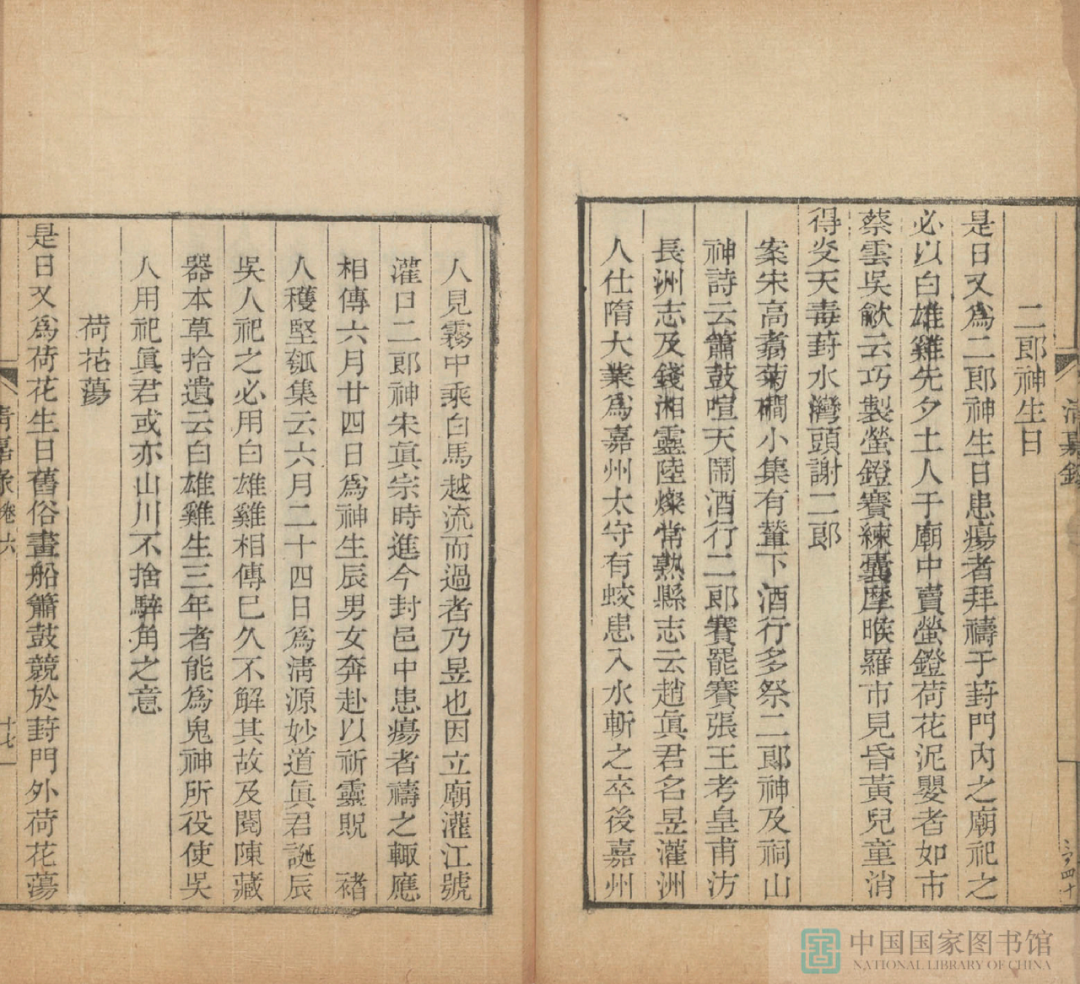 二郎神生日
是日又爲二郎神生日患瘍者拜禱于葑門內之廟祀之
必以白雄雞先夕土人于廟中賣螢鐙荷花泥嬰者如市
蔡雲吳歈云巧製螢鐙賽練囊摩睺羅市見昏黃兒童消
得炎天毒葑水灣頭謝二郎
案宋高翥菊磵小集有輦下酒行多祭二郎神及祠山
神詩云簫鼓喧天鬧酒行二郎賽罷賽張王考皇甫汸
長洲志及錢湘靈陸燦常熟縣志云趙眞君名昱灌洲
人仕隋大業爲嘉州太守有蛟患入水斬之卒後嘉州
清嘉錄
人見霧中乘白馬越流而過者乃昱也因立廟灌江號
灌口二郎神宋眞宗時進今封邑中患瘍者禱之輒應
相傳六月廿四日爲神生辰男女奔赴以祈靈貺 褚
人穫堅瓠集云六月二十四日爲清源妙道眞君誕辰
吳人祀之必用白雄雞相傳巳久不解其故及閱陳藏
器本草拾遺云白雄雞生三年者能爲鬼神所役使吳
人用祀眞君或亦山川不捨騂角之意
荷花蕩
是日又爲荷花生日舊俗畫船簫鼓競於葑門外荷花蕩
清嘉錄 卷六
十七
中国国家图书馆
NATIONAL LIBRARY OF CHINA